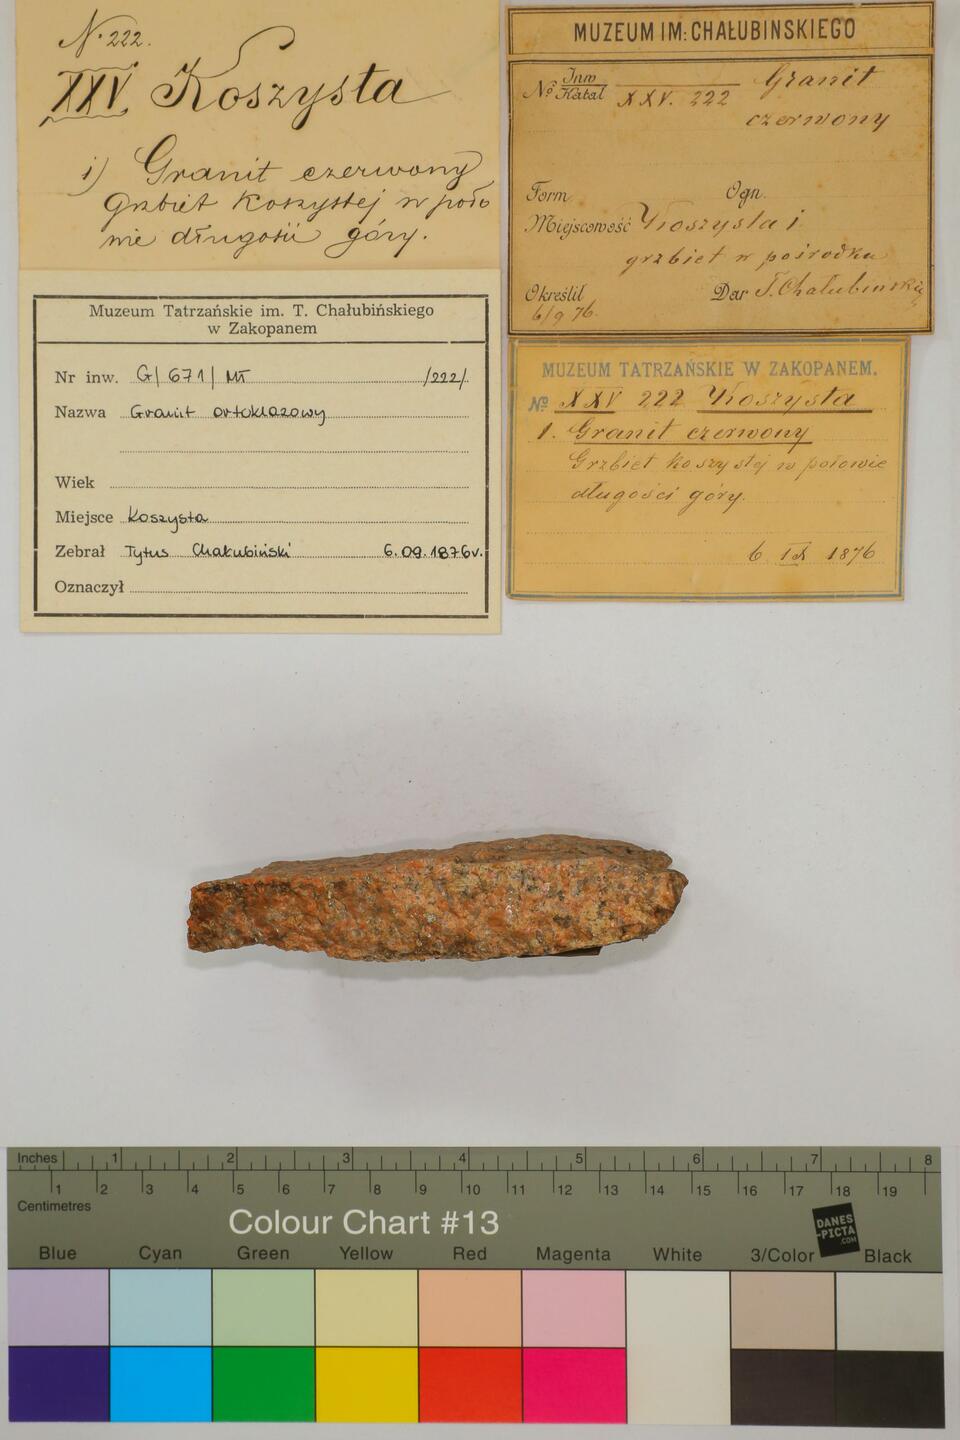 N. 222.
XXV Koszysta
i) Granit czerwony
Grzbiet Koszystej w poło
wie długości góry.
MUZEUM IM: CHAŁUBINSKIEGO
No Inw
Katal XXV. 222 Granit
czerwony
Form. Ogn.
Miejscowość Koszysta i
grzbiet w pośrodku
Określił Dar T. Chałubinskiego
6/9 76.
Muzeum Tatrzańskie im. T. Chałubińskiego
w Zakopanem
Nr inw. G/671/MT /222/
Nazwa Granit ortoklazowy
Wiek
Miejsce Koszysta
Zebrał Tytus Chałubiński 6.09.1876r.
Oznaczył
MUZEUM TATRZAŃSKIE W ZAKOPANEM.
No XXV 222 Koszysta
1. Granit czerwony
Grzbiet Koszystej w połowie
długości góry.
6 IX 1876
Inches 1 2 3 4 5 6 7 8
1 2 3 4 5 6 7 8 9 10 11 12 13 14 15 16 17 18 19
Centimetres
Colour Chart #13
DANES
-PICTA
.COM
Blue Cyan Green Yellow Red Magenta White 3/Color Black